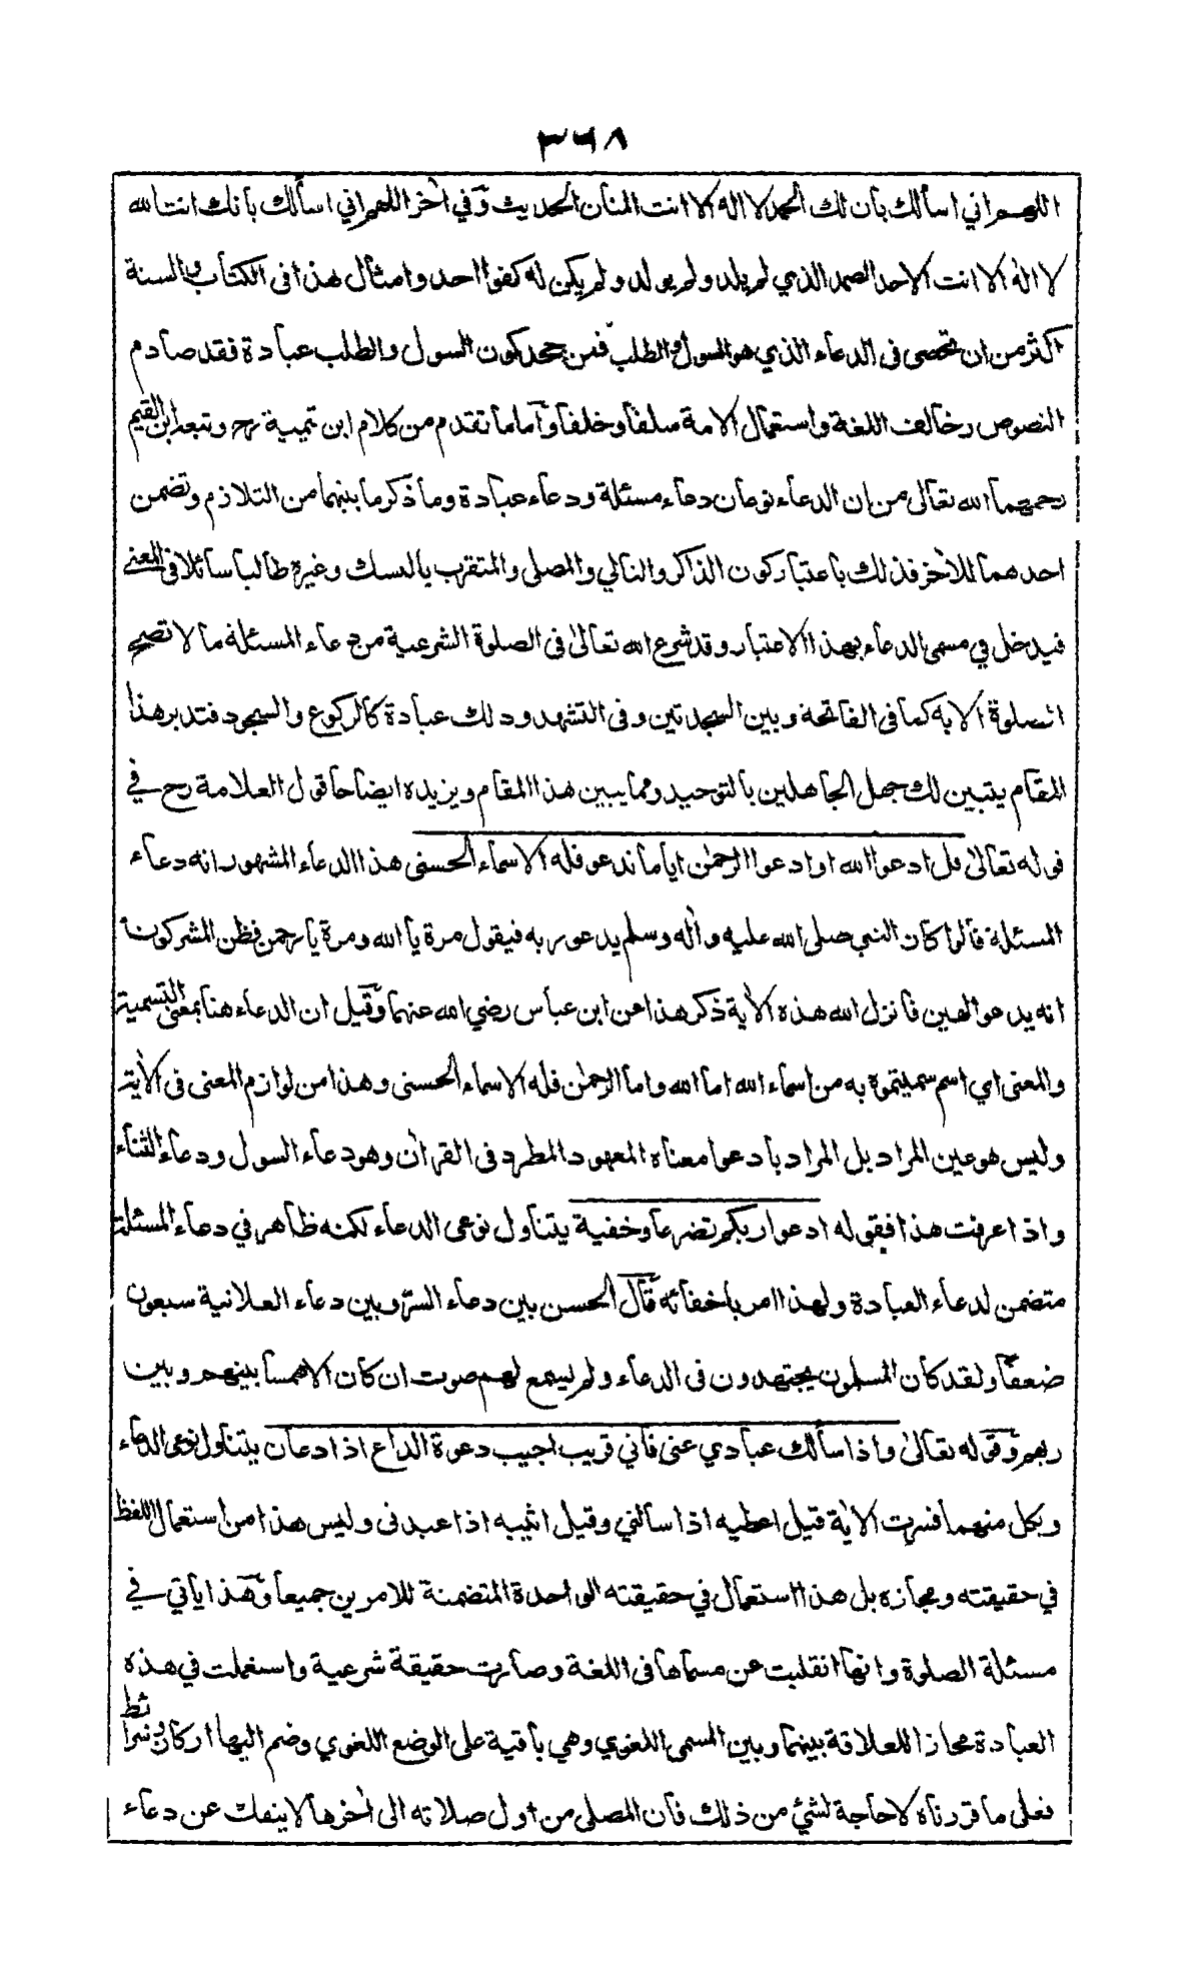 ٣٦٨
اللهم اني اسألك بأن لك الحمد لا اله الا انت المنان الحديث وفي اخر اللهم اني اسألك بأنك انت الله
لا اله الا انت الاحد الصمد الذي لم يلد ولم يولد ولم يكن له كفوا احد وامثال هذا في الكتاب والسنة
اكثر من ان تحصى في الدعاء الذي هو السول والطلب فمن جحد كون السول والطلب عبادة فقد صادم
النصوص وخالف اللغة واستعمال الامة سلفا وخلفا وأما ما تقدم من كلام ابن تيمية رح وتبعه ابن القيم
رحمهما الله تعالى من ان الدعاء نوعان دعاء مسئلة ودعاء عبادة وما ذكر ما بينهما من التلازم وتضمن
احدهما للاخر فذلك باعتبار كون الذاكر والتالي والمصلي والمتقرب بالنسك وغيره طالبا سائلا في المعنى
فيدخل في مسمى الدعاء بهذا الاعتبار وقد شرع الله تعالى في الصلوة الشرعية من دعاء المسئلة ما لا تصح
الصلوة الا به كما في الفاتحة وبين السجدتين وفي التشهد وذلك عبادة كالركوع والسجود فتدبر هذا
المقام يتبين لك جهل الجاهلين بالتوحيد ومما يبين هذا المقام ويزيده ايضاحا قول العلامة رح في
قوله تعالى قل ادعوا الله او ادعوا الرحمن اياما تدعو فله الاسماء الحسنى هذا الدعاء المشهور انه دعاء
المسئلة قالوا كان النبي صلى الله عليه واله وسلم يدعو ربه فيقول مرة يا الله ومرة يا رحمن فظن المشركون
انه يدعو الهين فانزل الله هذه الاية ذكر هذا عن ابن عباس رضي الله عنهما وقيل ان الدعاء هنا بمعنى التسمية
والمعنى اي اسم سميتموه به من اسماء الله اما الله واما الرحمن فله الاسماء الحسنى وهذا من لوازم المعنى في الاية
وليس هو عين المراد بل المراد بادعوا معناه المعهود المطرد في القران وهو دعاء السول ودعاء الثناء
واذا عرفت هذا فقوله ادعوا ربكم تضرعا وخفية يتناول نوعي الدعاء لكنه ظاهر في دعاء المسئلة
متضمن لدعاء العبادة ولهذا امر باخفائه قال الحسن بين دعاء السر وبين دعاء العلانية سبعون
ضعفا ولقد كان المسلمون يجتهدون في الدعاء ولم يسمع لهم صوت ان كان الا همسا بينهم وبين
ربهم وقوله تعالى واذا سألك عبادي عني فاني قريب اجيب دعوة الداع اذا دعان يتناول نوعي الدعاء
وبكل منهما فسرت الاية قيل اعطيه اذا سالني وقيل اثيبه اذا عبدني وليس هذا من استعمال اللفظ
في حقيقته ومجازه بل هذا استعمال في حقيقته الواحدة المتضمنة للامرين جميعا وهذا ياتي في
مسئلة الصلوة وانها انقلبت عن مسماها في اللغة وصارت حقيقة شرعية واستعملت في هذه
العبادة مجازا للعلاقة بينهما وبين المسمى اللغوي وهي باقية على الوضع اللغوي وضم اليها اركان وشرائط
فعلى ما قررناه لا حاجة لشئ من ذلك فان المصلي من اول صلاته الى اخرها لا ينفك عن دعاء